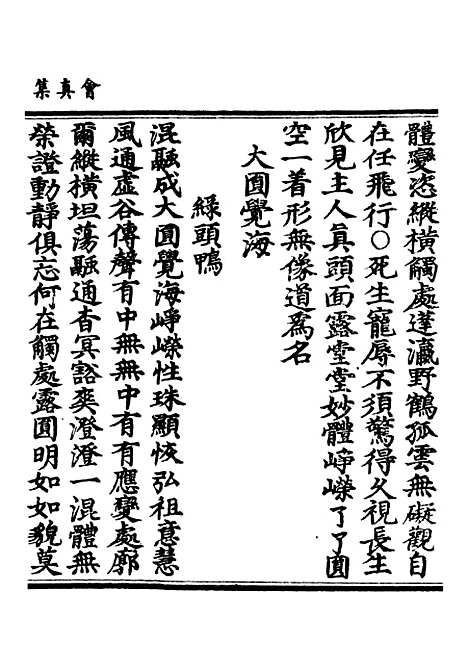 會真集
體變恣縱橫觸處達瀛野鶴孤雲無礙觀自
在任飛行○死生寵辱不須驚得久視長生
欣見主人真頭面露堂堂妙體崢嶸了了圓
空一着形無像道爲名
大圓覺海
綠頭鴨
混融成大圓覺海崢嶸性珠顯恢弘祖意慧
風通虛谷傳聲有中無無中有有應變處廓
爾縱橫坦蕩融通杳冥豁爽澄澄一混體無
榮證動靜俱忘何在觸處露圓明如如貌莫